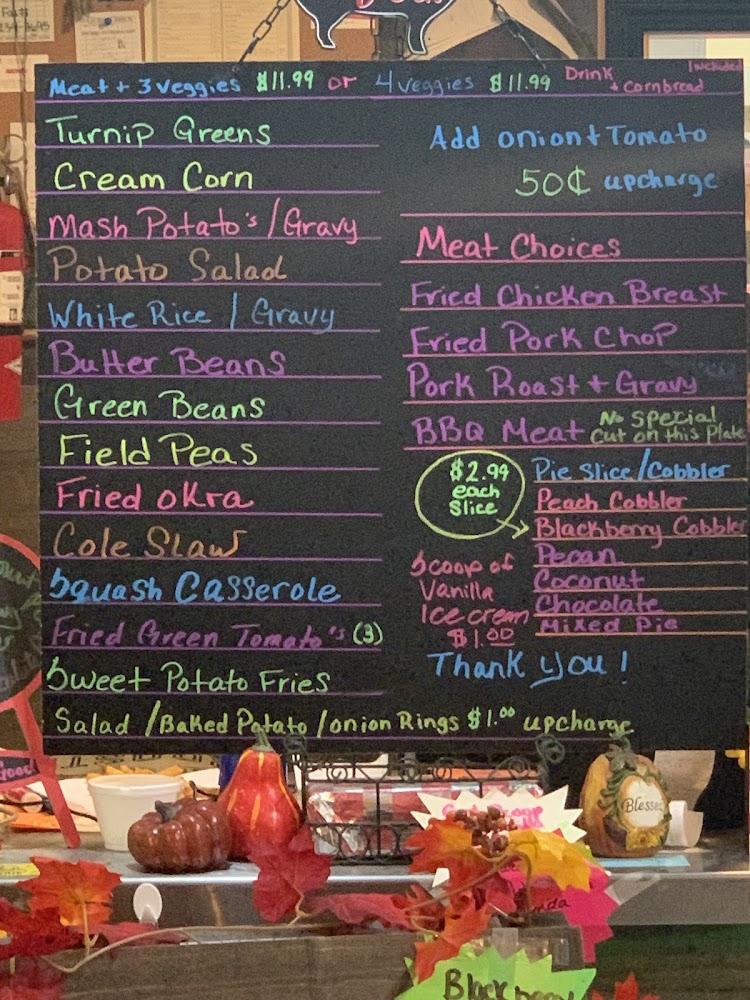 Meat + 3 veggies $11.99 or 4 veggies $11.99 Drink + Cornbread Included
Turnip Greens
Cream Corn
Mash Potato's / Gravy
Potato Salad
White Rice / Gravy
Butter Beans
Green Beans
Field Peas
Fried okra
Cole Slaw
Squash Casserole
Fried Green Tomato's (3)
Sweet Potato Fries
Salad / Baked Potato / onion Rings $1.00 upcharge
Add onion + Tomato
50¢ upcharge
Meat Choices
Fried Chicken Breast
Fried Pork Chop
Pork Roast + Gravy
BBQ Meat No Special
Cut on this Plate
$2.99
each
Slice
Pie Slice/Cobbler
Peach Cobbler
Blackberry Cobbler
Pecan
Coconut
Chocolate
Mixed Pie
Scoop of
Vanilla
Ice cream
$1.00
Thank you!
Blessed